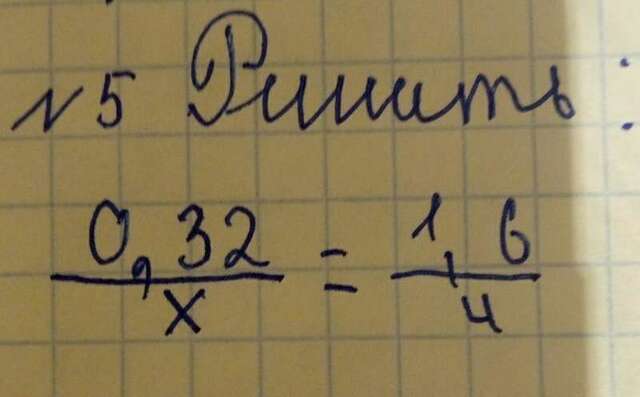 №5 Решить:
0,32/x = 1,6/4